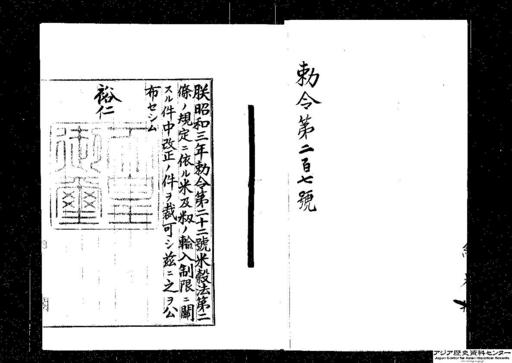 勅令第二百七號
朕昭和三年勅令第二十二號米穀法第二
條ノ規定ニ依ル米及籾ノ輸入制限ニ關
スル件中改正ノ件ヲ裁可シ玆ニ之ヲ公
布セシム
裕仁
アジア歴史資料センター
Japan Center for Asian Historical Records